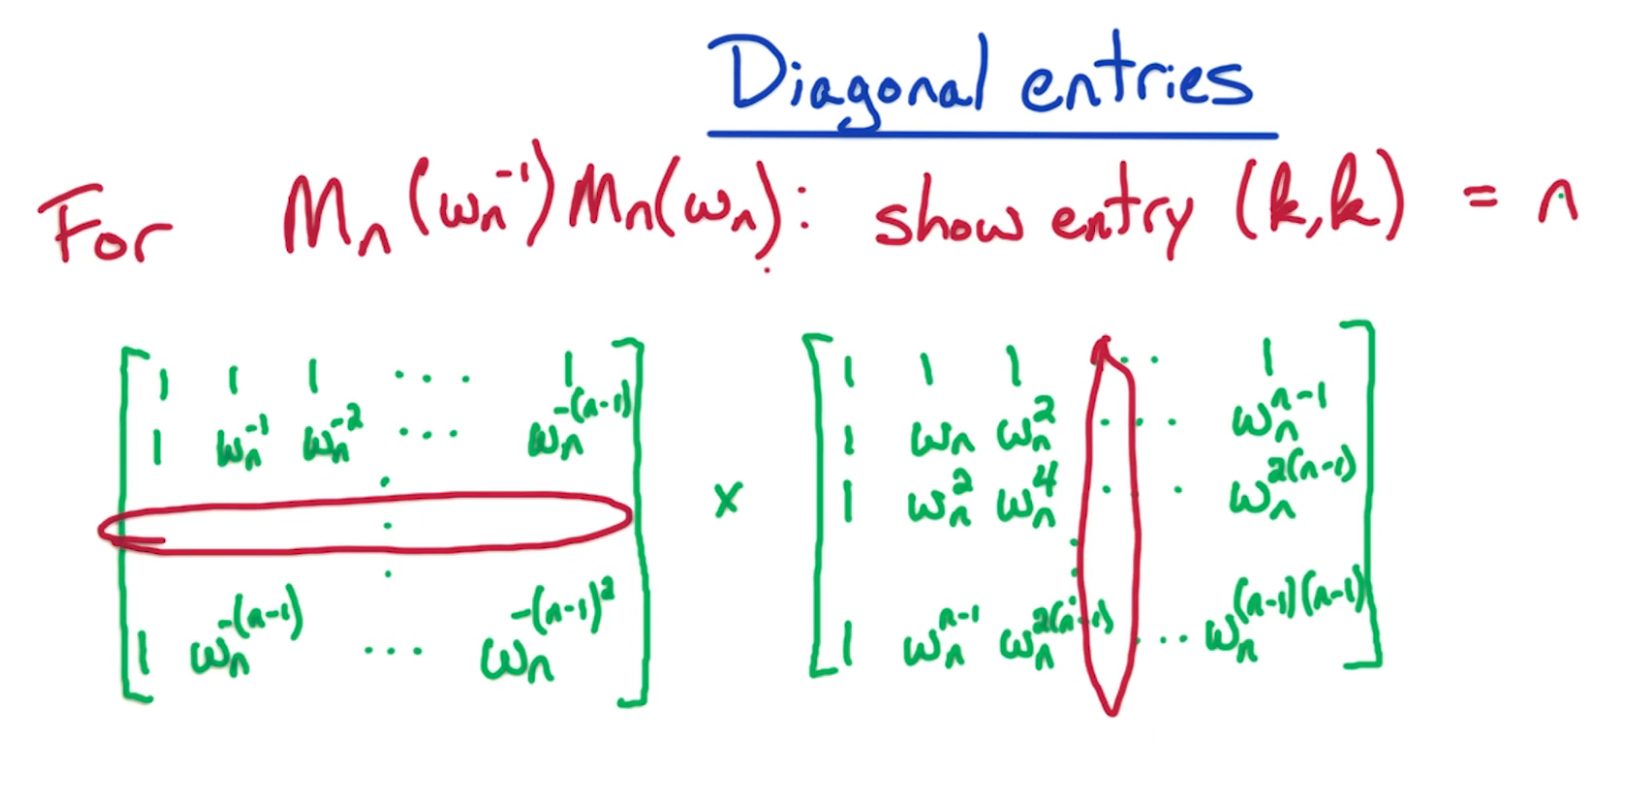 Diagonal entries
For Mₙ(ωₙ⁻¹)Mₙ(ωₙ): show entry (k,k) = n
[1 1 1 ... 1] × [1 1 1 ... 1]
[1 ωₙ⁻¹ ωₙ⁻² ... ωₙ^-(n-1)] [1 ωₙ ωₙ² ... ωₙ^n-1]
[1 ωₙ² ωₙ⁴ ... ωₙ^2(n-1)]
[1 ωₙ^-(n-1) ... ωₙ^-(n-1)²] [1 ωₙ^n-1 ωₙ^2(n-1) ... ωₙ^(n-1)(n-1)]